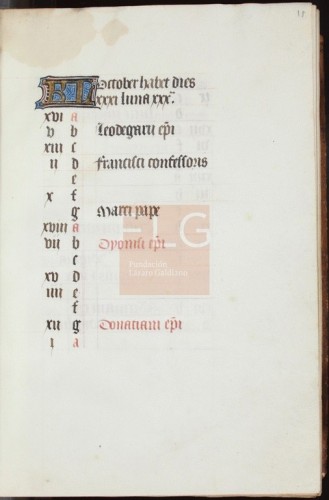 18
KL October habet dies
xxxi luna xxx.
xvi a
v b Leodegarii epi
xiii c
ii d Francisci confessoris
e
x f
g Marci pape
xviii a
vii b Dyonisi epi
c
xv d
iiii e
f
xii g Donatiani epi
i a
FLG
Fundación
Lázaro Galdiano